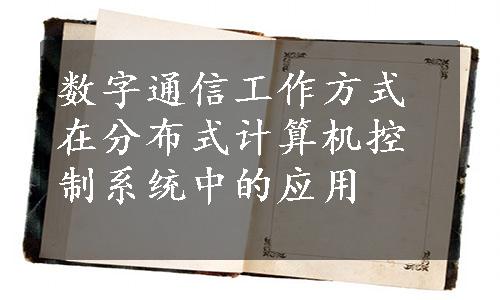 数字通信工作方式
在分布式计算机控
制系统中的应用